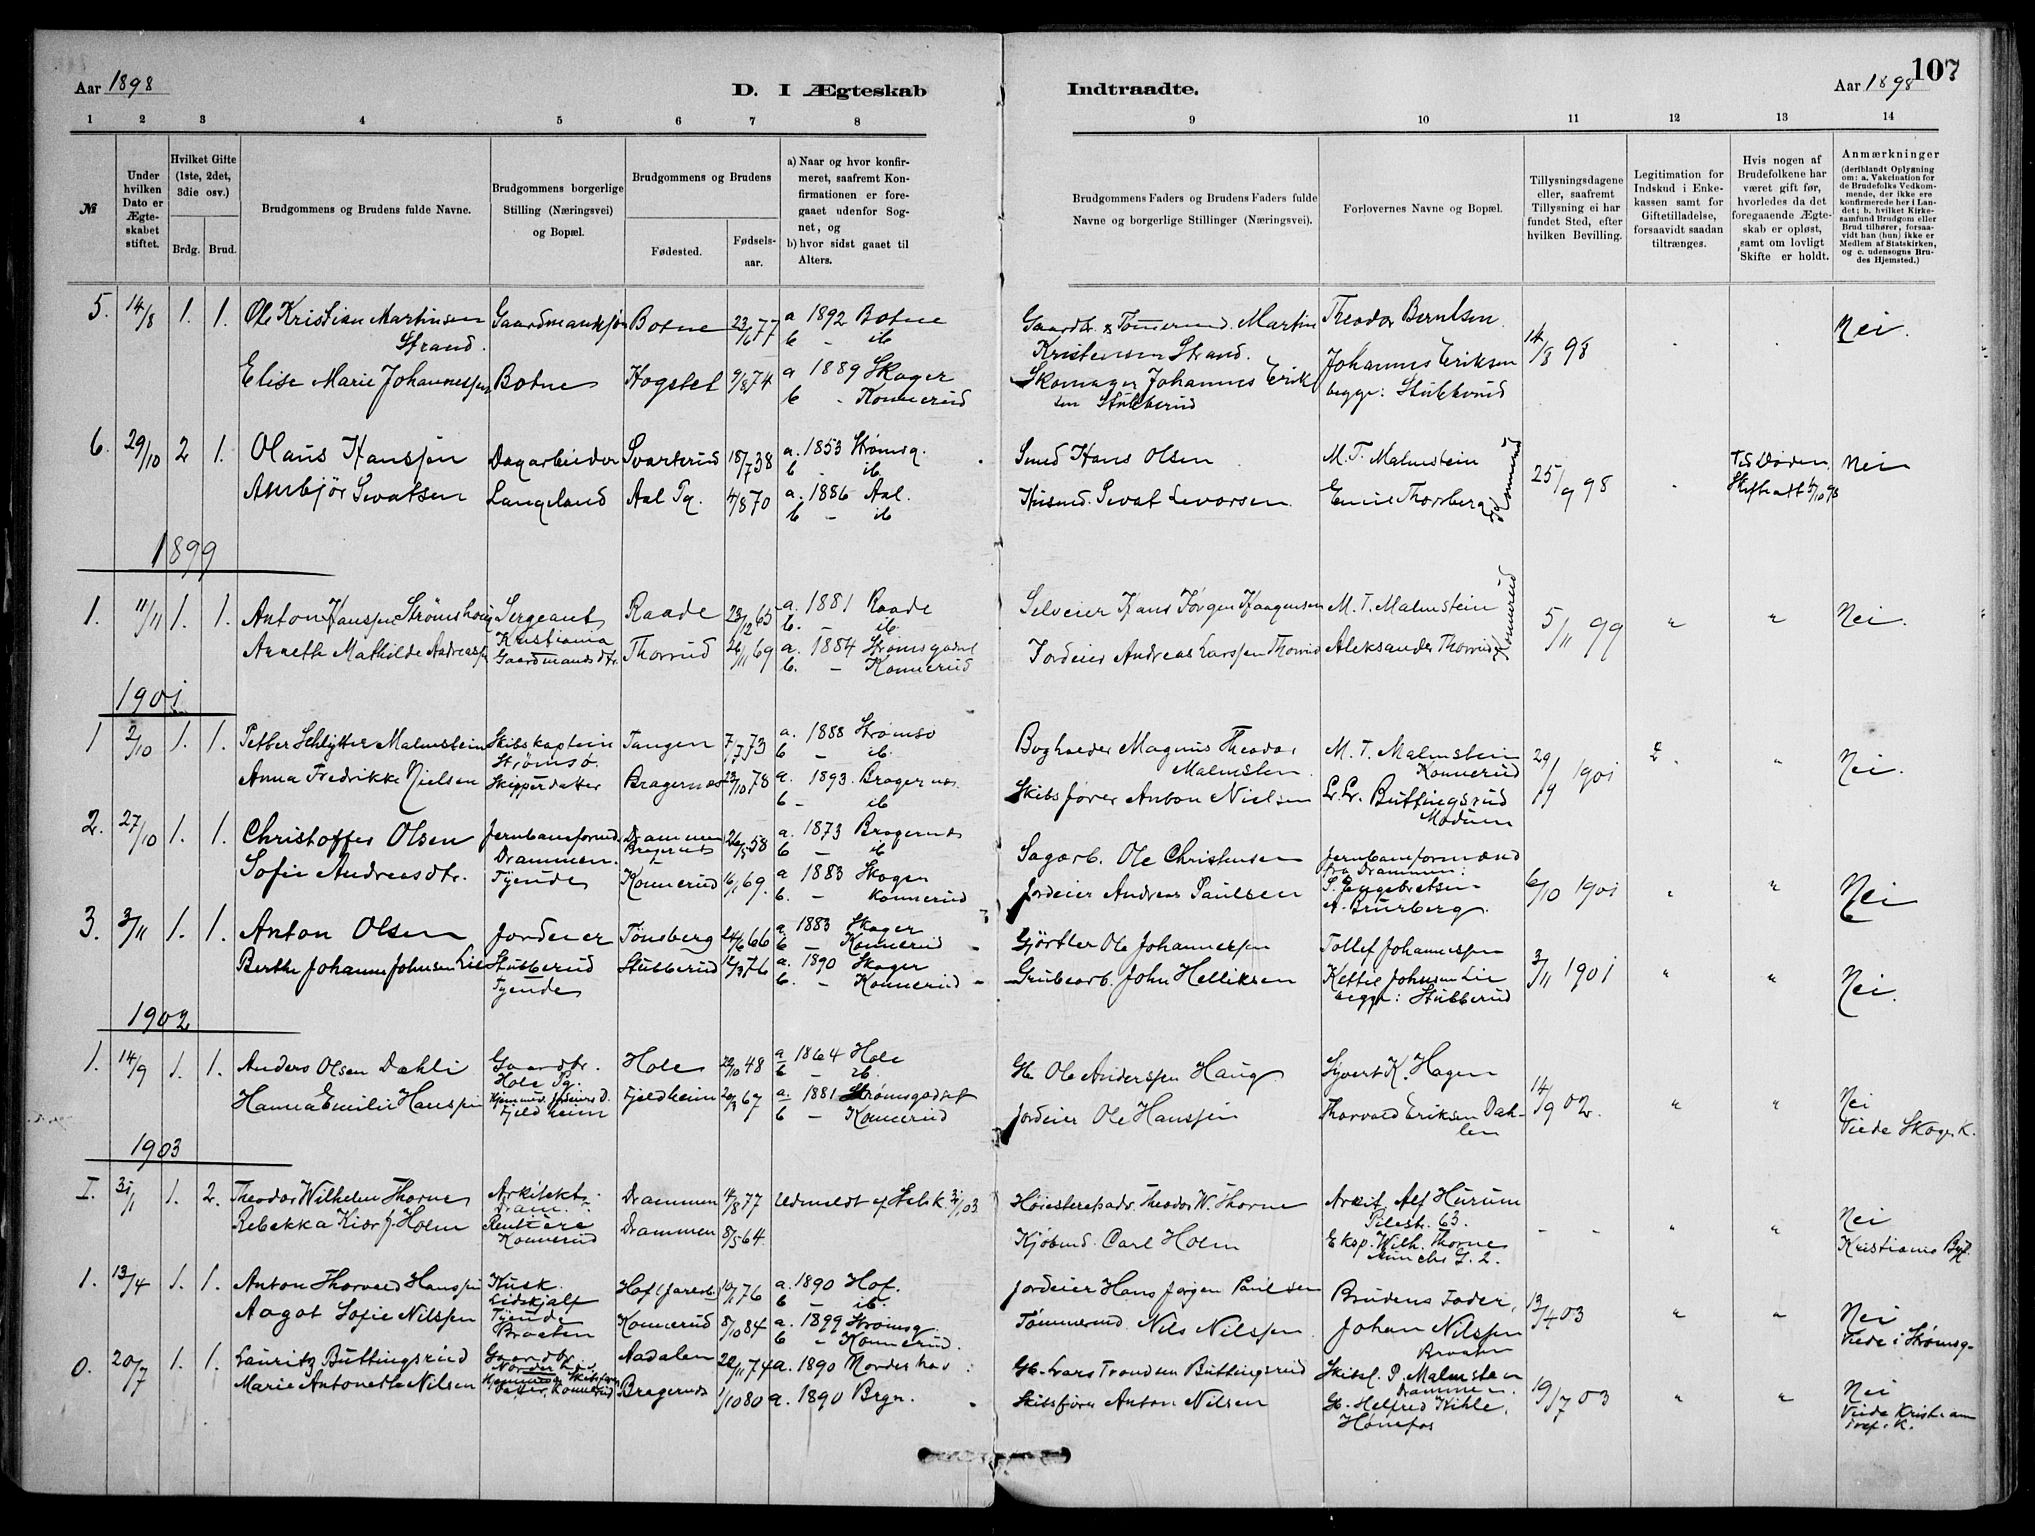 107
Aar 1898
D. I Ægteskab Indtraadte.
Aar 1898
1 2 3 4 5 6 7 8 9 10 11 12 13 14
№
Under hvilken Dato er Ægteskabet stiftet.
Hvilket Gifte (1ste, 2det, 3die osv.)
Brdg. Brud.
Brudgommens og Brudens fulde Navne.
Brudgommens borgerlige Stilling (Næringsvei) og Bopæl.
Brudgommens og Brudens
Fødested. Fødselsaar.
a) Naar og hvor konfirmeret, saafremt Konfirmationen er foregaaet udenfor Sognet, og
b) hvor sidst gaaet til Alters.
Brudgommens Faders og Brudens Faders fulde Navne og borgerlige Stillinger (Næringsvei).
Forlovernes Navne og Bopæl.
Tillysningsdagene eller, saafremt Tillysning ei har fundet Sted, efter hvilken Bevilling.
Legitimation for Indskud i Enkekassen samt for Giftetilladelse, forsaavidt saadan tiltrænges.
Hvis nogen af Brudefolkene har været gift før, hvorledes da det foregaaende Ægteskab er opløst, samt om lovligt Skifte er holdt.
Anmærkninger (deriblandt Oplysning om: a. Vakcination for de Brudefolks Vedkommende, der ikke ere konfirmerede her i Landet; b. hvilket Kirkesamfund Brudgom eller Brud tilhører, forsaavidt han (hun) ikke er Medlem af Statskirken, og c. udensogns Brudes Hjemsted.)
5. 14/8 1. 1. Ole Kristian Martinsen Strand. Botne 23/6 77 a 1892 Botne b – ib
Kristensen Strand. Theodor Berntsen. 14/8 98 Nei.
Elise Marie Johannesen Botne Kogstet 9/8 74 a 1889 Skoger b – Konnerud
Skomager Johannes Eriksen Stubberud Johannes Eriksen begge: Stubberud
6. 29/10 2 1. Olaus Hansen Dagarbeider Svarterud 18/7 38 a. 1853 Strømsg. b – ib
Smed Hans Olsen M. T. Malmstein 25/9 98 Ved Døden Nei
Ambjør Sevatsen Langeland Aal Pg. 4/8 70 a. 1886 Aal. b – ib
Husmd. Sevat Levorsen Emil Thorsberg Konnerud
1899
1. 11/11 1. 1. Anton Hansen Strømshoug Sergeant Kristiania Raade 23/12 65 a. 1881 Raade b. – ib.
Selveier Hans Jørgen Haagensen M. T. Malmstein 5/11 99 " " Nei.
Anneth Mathilde Andreasen Gaardmandsdtr. Thorrud 26/11 69 a. 1884 Strømsgodset b. – Konnerud
Jordeier Andreas Larssen Thorrud Aleksander Thorrud Konnerud
1901
1 2/10 1. 1. Petter Schlytter Malmstein Skibskaptein Strømsø. Tangen 7/7 73 a. 1888 Strømsø b – ib.
Bogholder Magnus Theodor Malmsten. M. T. Malmstein Konnerud 29/9 1901 " Nei.
Anna Fredrikke Nielsen Skipperdatter Bragernæs 23/10 78 a. 1893. Bragernæs b – ib
Skibsfører Anton Nielsen Lr. Lr. Buttingsrud Modum
2. 27/10 1. 1. Christoffer Olsen Jernbaneformd. Drammen. Drammen Bragernæs 26/5 58 a. 1873 Bragernæs b – ib
Sagarb. Ole Christensen Jernbaneformænd fra Drammen: 6/10 1901 " " Nei
Sofie Andreasdtr. Tjende Konnerud 16/1 69. a 1883 Skoger b. – Konnerud
Jordeier Andreas Paulsen S. Engebretsen A. Brurberg.
3. 3/11 1. 1. Anton Olsen Jordeier Tønsberg 24/6 66 a. 1883 Skoger b – Konnerud
Gjørtler Ole Johannessen Tollef Johannessen 3/11 1901 " " Nei.
Berthe Johanne Johnsen Lie Stubberud Tjende Stubberud 12/3 76 a. 1890 Skoger b. – Konnerud
Grubearb. John Helliksen Kettil Johnsen Lie begge: Stubberud
1902
1. 14/9 1. 1. Anders Olsen Dahli Gaardbr. Hole Pg. Hole 22/10 48 a 1864 Hole b – ib.
Gb. Ole Anderssen Haug. Syvert K. Hagen 14/9 02. " " Nei
Hanna Emilie Hanssen Fjeldheim Fjeldheim 20/3 67 a. 1881 Strømsgodset b – Konnerud
Jordeier Ole Hanssen Thorvald Eriksen Dahlen Viede Skoger K.
1903
I. 31/1 1. 2. Theodor Wilhelm Thorne Arkitekt Dram. Drammen 14/8 77 Udmeldt af Stsk. 31/1 03
Høiesteretsadv. Theodor W. Thorne Arkit. Alf Hurum Pilestr. 63. – – " Nei
Rebekka Kiær f. Holm Rentiere Konnerud Drammen 8/5 64.
Kjøbmd. Carl Holm Eksp. Wilh. Thorne Munchs G. 2. Kristiania Byf.
1. 13/4 1. 1. Anton Thorvald Hanssen Kusk. Lidskjalf Hof (Jarlsb.) 10/1 76 a. 1890 Hof. b – ib.
Jordeier Hans Jørgen Paulsen Brudens Fader, 13/4 03 " " Nei
Aagot Sofie Nilssen Tjende Braaten Konnerud 8/10 84 a. 1899 Strømsg. b – Konnerud.
Tømmermd. Nils Nilssen. Johan Nilssen Braaten Viede i Strømsg.
0. 20/7 1. 1. Lauritz Buttingsrud Gaardbr. Norderhov Aadalen 22/11 74 a. 1890 Norderhov
Gb. Lars Trondsen Buttingsrud Skibsf. P. Malmstein Drammen. 19/7 03 " " Nei
Marie Antonette Nilsen Skibsfører Datter, Konnerud Bragernæs 1/10 80 a. 1890 Brgn.
Skibsfører Anton Nilsen Gb. Helfred Kihle, Hønefos Viede Kristiania